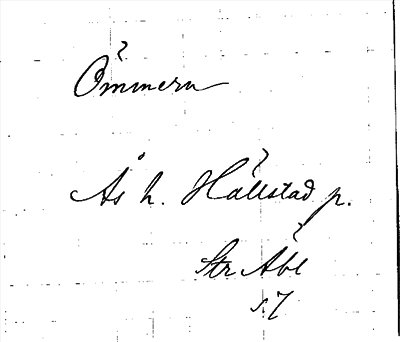 Ömmern
Ås h. Hällstad p.
Str Åbl
s. 7